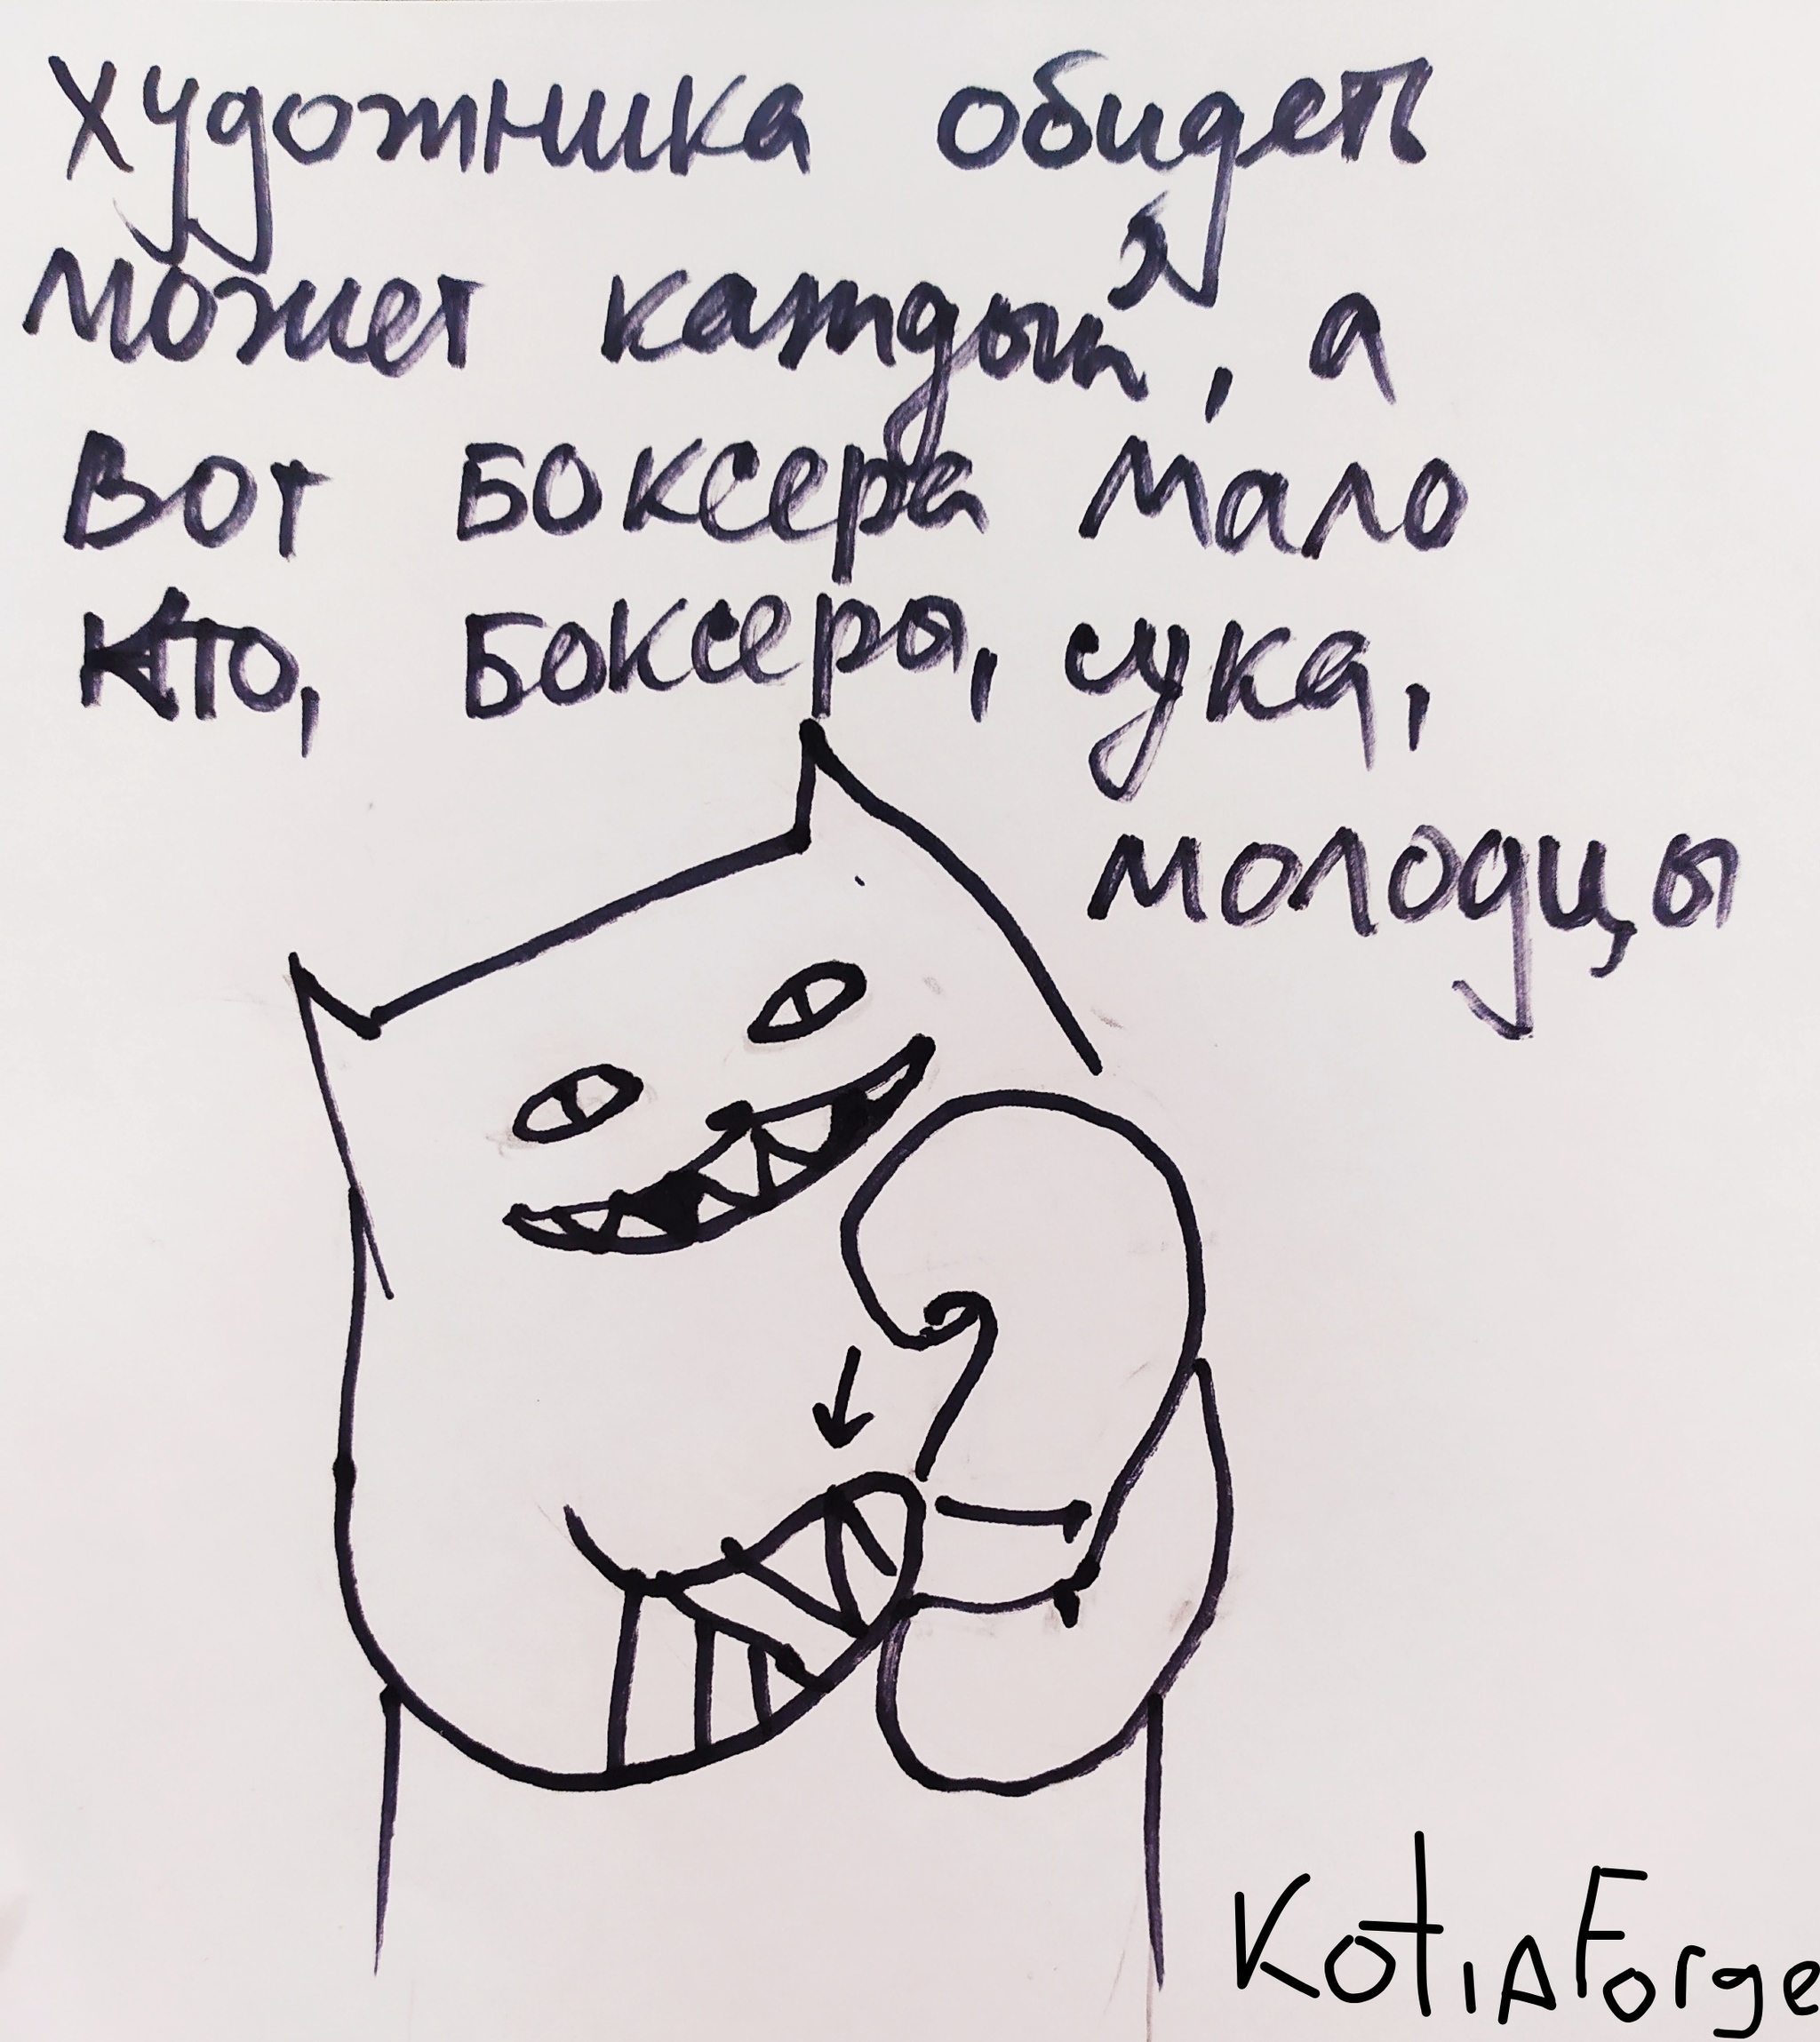 художника обидеть
может каждый, а
вот боксера мало
кто, боксеры, сука,
молодцы
KotiaForge